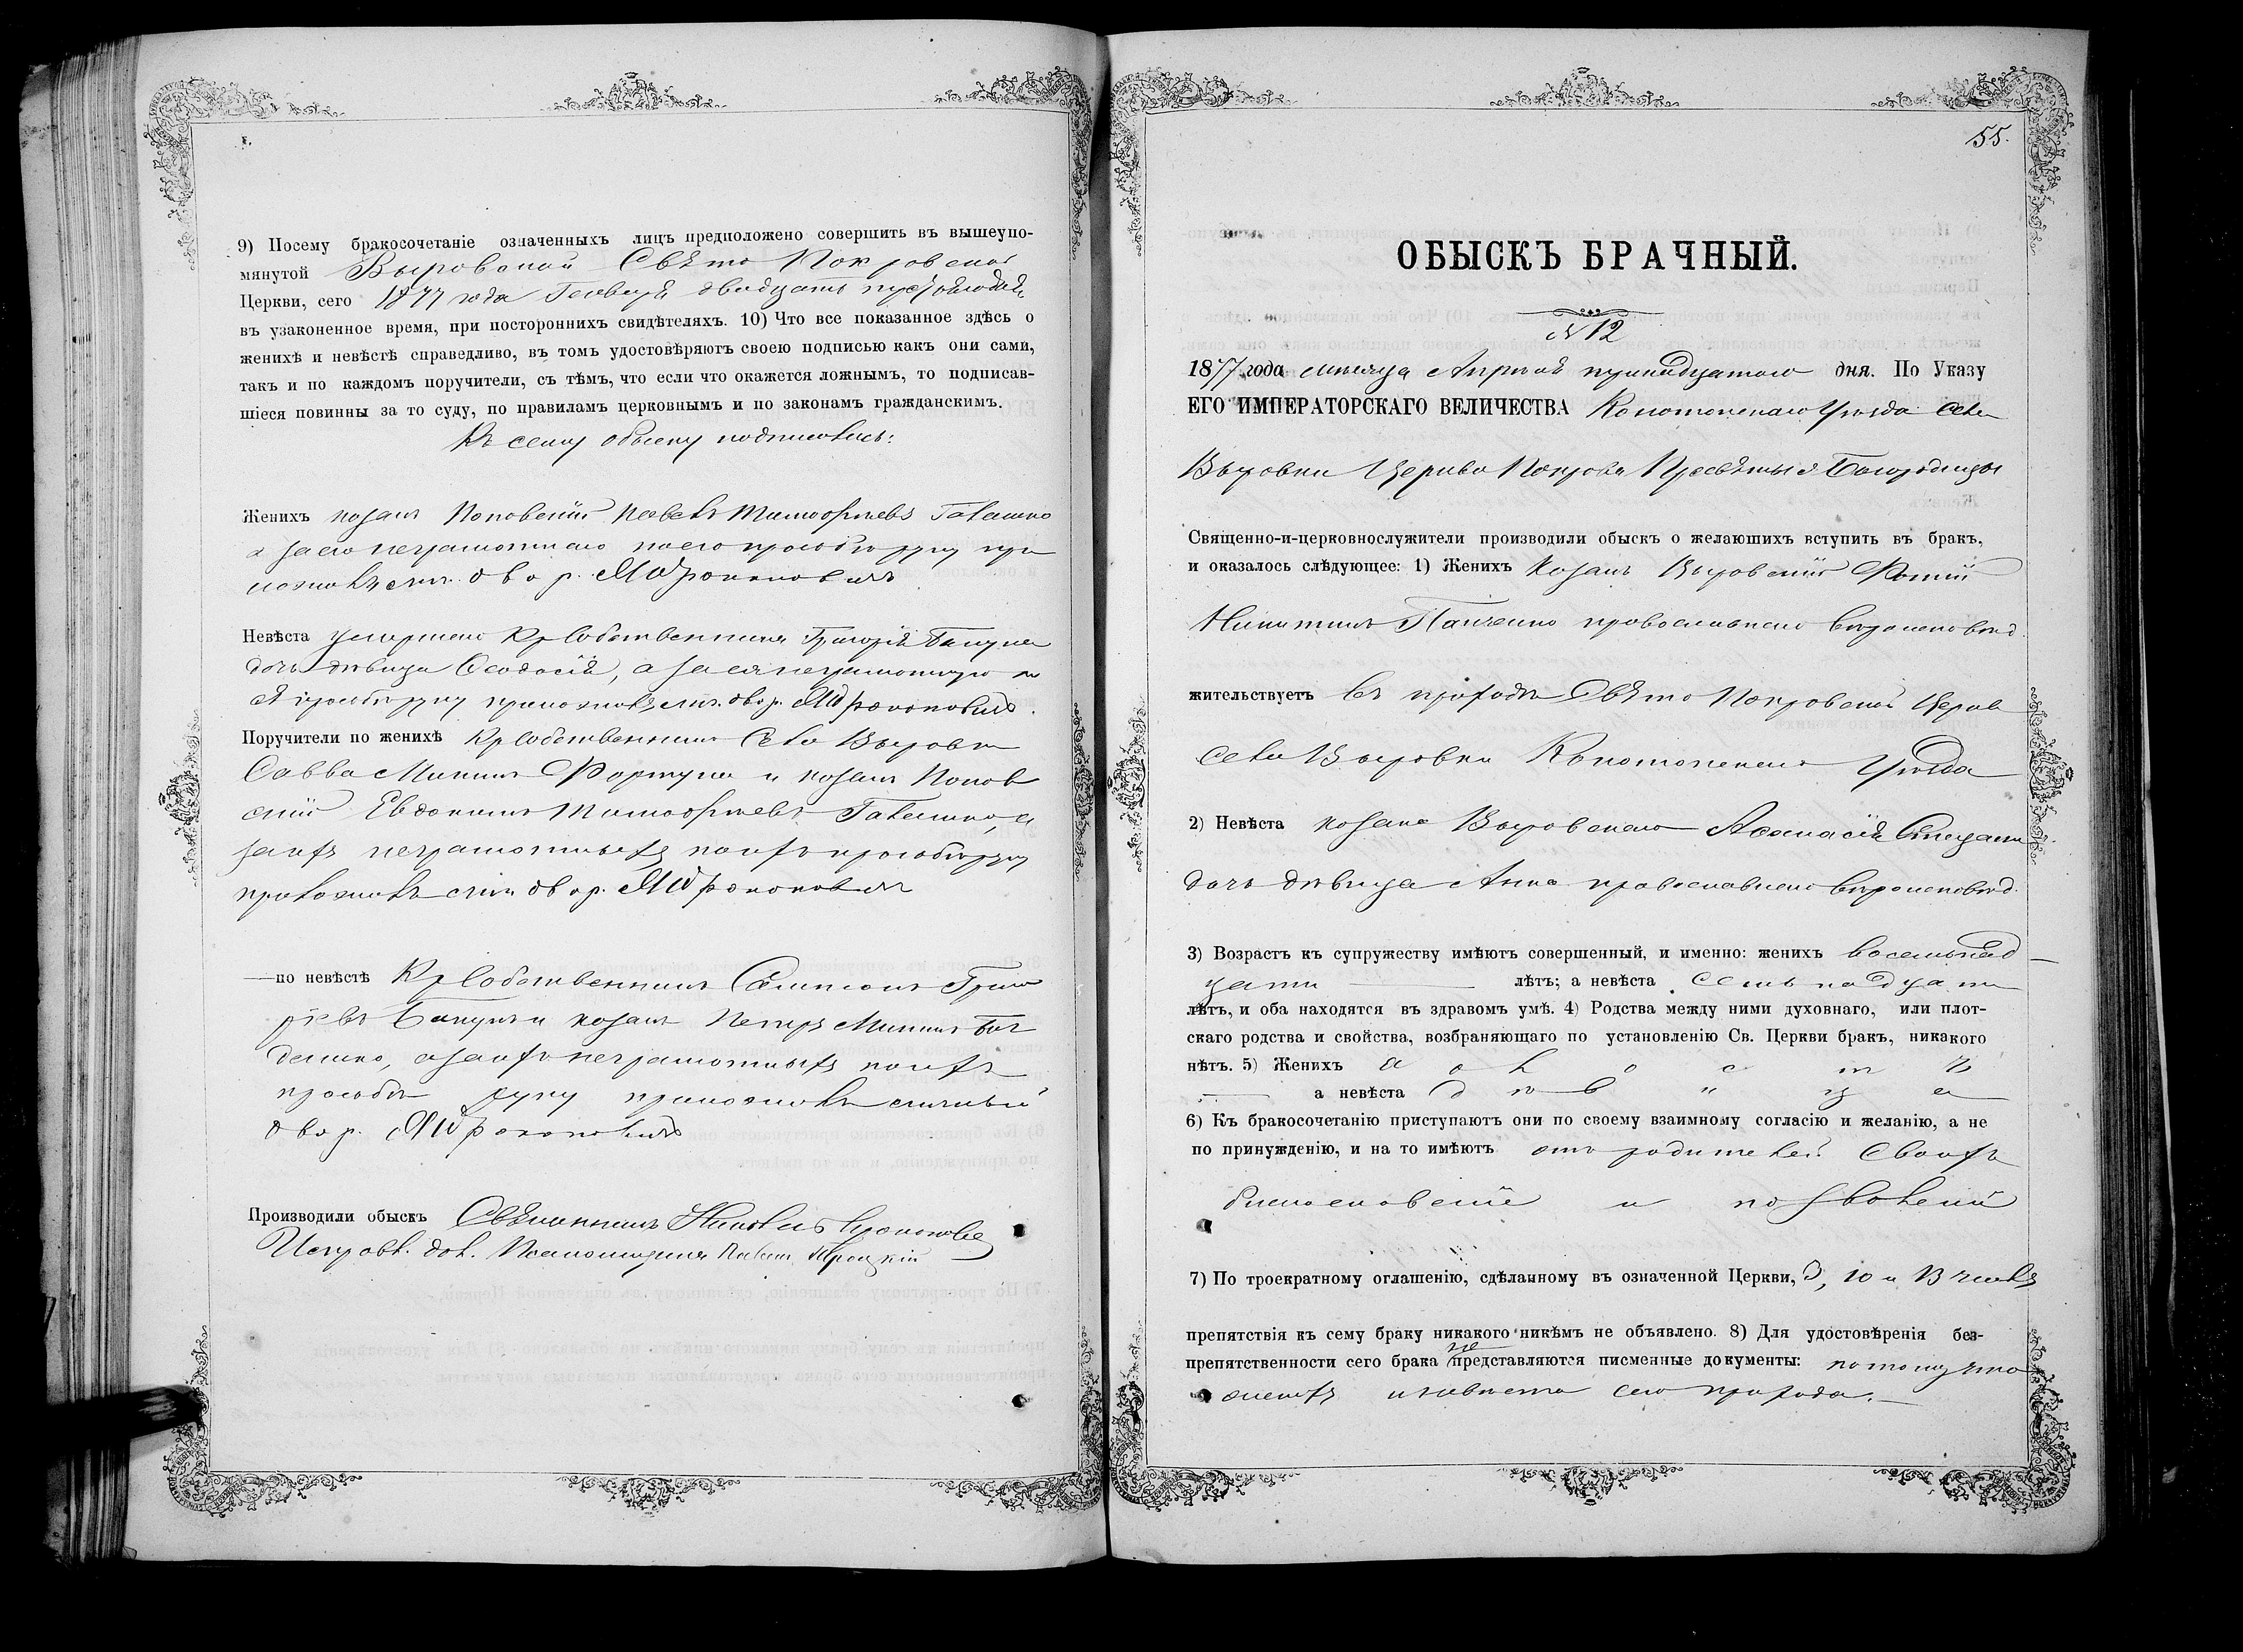 9) Посему бракосочетаніе означенныхъ лицъ предположено совершить въ вышеупо-
мянутой Выровской Свято Покровской
Церкви, сего 1877 года Генваря двадцать
въ узаконенное время, при постороннихъ свидѣтеляхъ. 10) Что все показанное здѣсь о
женихѣ и невѣстѣ справедливо, въ томъ удостовѣряютъ своею подписью какъ они сами,
такъ и по каждомъ поручители, съ тѣмъ, что если что окажется ложнымъ, то подписав-
шіеся повинны за то суду, по правиламъ церковнымъ и по законамъ гражданскимъ.
Къ сему обыску подписались:
Женихъ козакъ Поповскій Тимофѣевъ Галашко
а за его неграмотнаго по его прозьбѣ руку при
ложилъ двор. Прокоповичъ
Невѣста умершаго Кр Собственника Григорія
дочь дѣвица Ѳеодосія, а за ея неграмотную по
ея прозьбѣ руку приложилъ двор. Прокоповичъ.
Поручители по женихѣ Кр Собственникъ Села Выровки
Савва Мининъ Фортуна и козакъ Попов
скій Евдокимъ Тимофѣевъ Галашко, а
за ихъ неграмотныхъ по ихъ прозьбѣ руку
приложилъ двор. Прокоповичъ
—по невѣстѣ Кр Собственникъ Самсонъ Григо
рьевъ и козакъ Петръ Мининъ
а за ихъ неграмотныхъ по ихъ
прозьбѣ руку приложилъ
двор. Прокоповичъ
Производили обыскъ Священникъ Николай Прокопович
Исправл. дол. Псаломщика Троцкій
55.
ОБЫСКЪ БРАЧНЫЙ.
N 12
1877 года мѣсяца Апрѣля дня. По Указу
ЕГО ИМПЕРАТОРСКАГО ВЕЛИЧЕСТВА Конотопскаго Уѣзда Села
Выровки Церкви Покрова Пресвятыя Богородицы
Священно-и-церковнослужители производили обыскъ о желаюшихъ вступить въ бракъ,
и оказалось слѣдующее: 1) Женихъ Козакъ Выровскій Фотій
Никитинъ Панченко православнаго вѣроисповѣд.
жительствуетъ въ приходѣ Свято Покровской Церкви
Села Выровки Конотопскаго Уѣзда
2) Невѣста козака Выровскаго Аѳанасія
дочь дѣвица Анна православнаго вѣроисповѣд.
3) Возрастъ къ супружеству имѣютъ совершенный, и именно: женихъ восемьнад
цати лѣтъ; а невѣста семьнадцати
лѣтъ, и оба находятся въ здравомъ умѣ. 4) Родства между ними духовнаго, или плот-
скаго родства и свойства, возбраняющаго по установленію Св. Церкви бракъ, никакого
нѣтъ. 5) Женихъ холостъ
а невѣста дѣвица
6) Къ бракосочетанію приступаютъ они по своему взаимному согласію и желанію, а не
по принужденію, и на то имѣютъ отъ родителей своихъ
благословеніе и позволеніе
7) По троекратному оглашенію, сдѣланному въ означенной Церкви, 3, 10 и 13 числъ
препятствія къ сему браку никакого никѣмъ не объявлено. 8) Для удостовѣренія без-
препятственности сего брака не представляются писменные документы: потому что
женихъ и невѣста сего прихода.